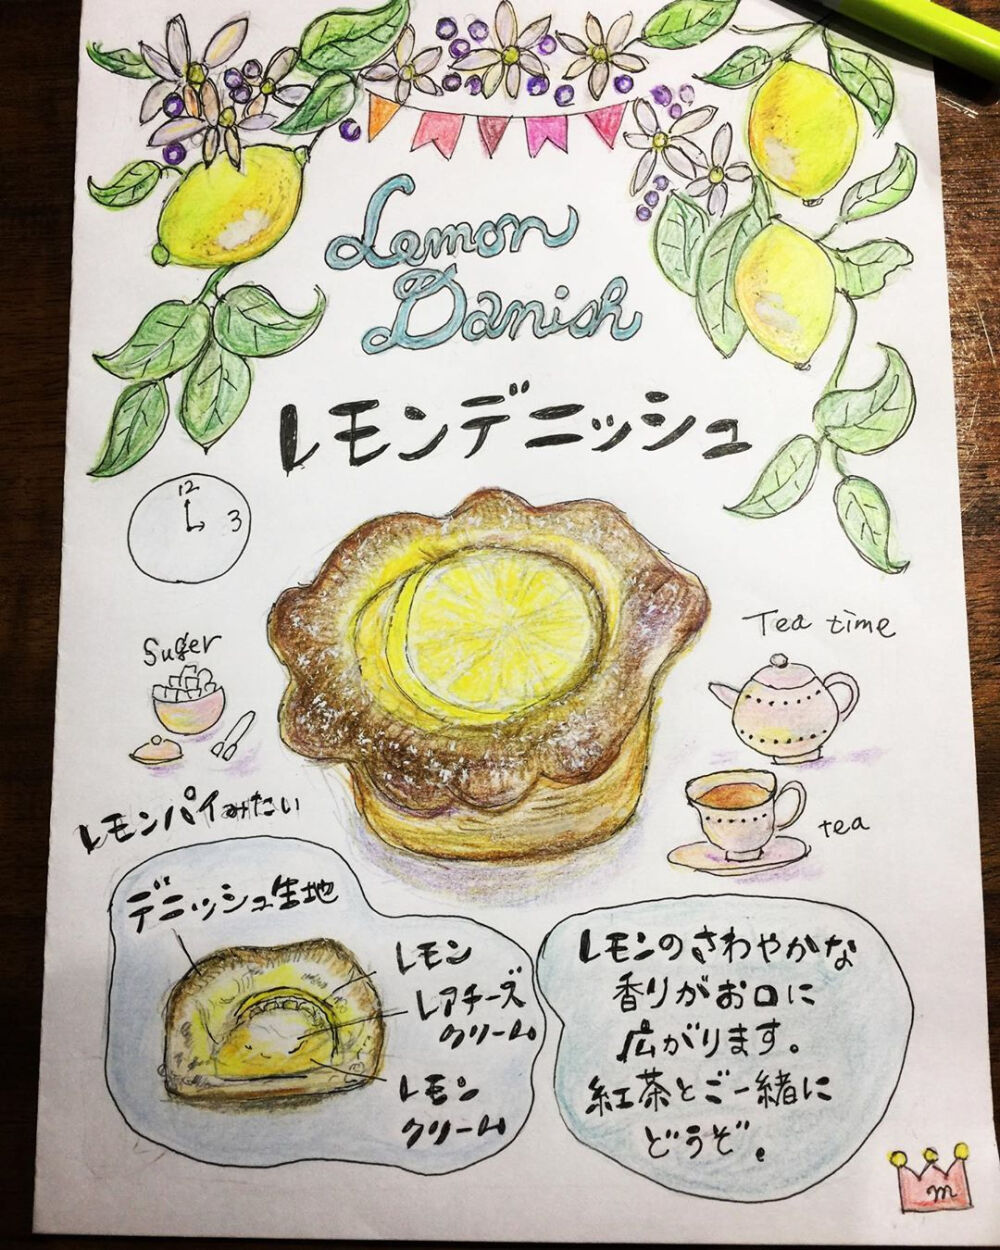 Lemon
Danish
レモンデニッシュ
12
3
Suger
Tea time
tea
レモンパイみたい
デニッシュ生地
レモン
レアチーズ
クリーム
レモン
クリーム
レモンのさわやかな
香りがお口に
広がります。
紅茶とご一緒に
どうぞ。
m